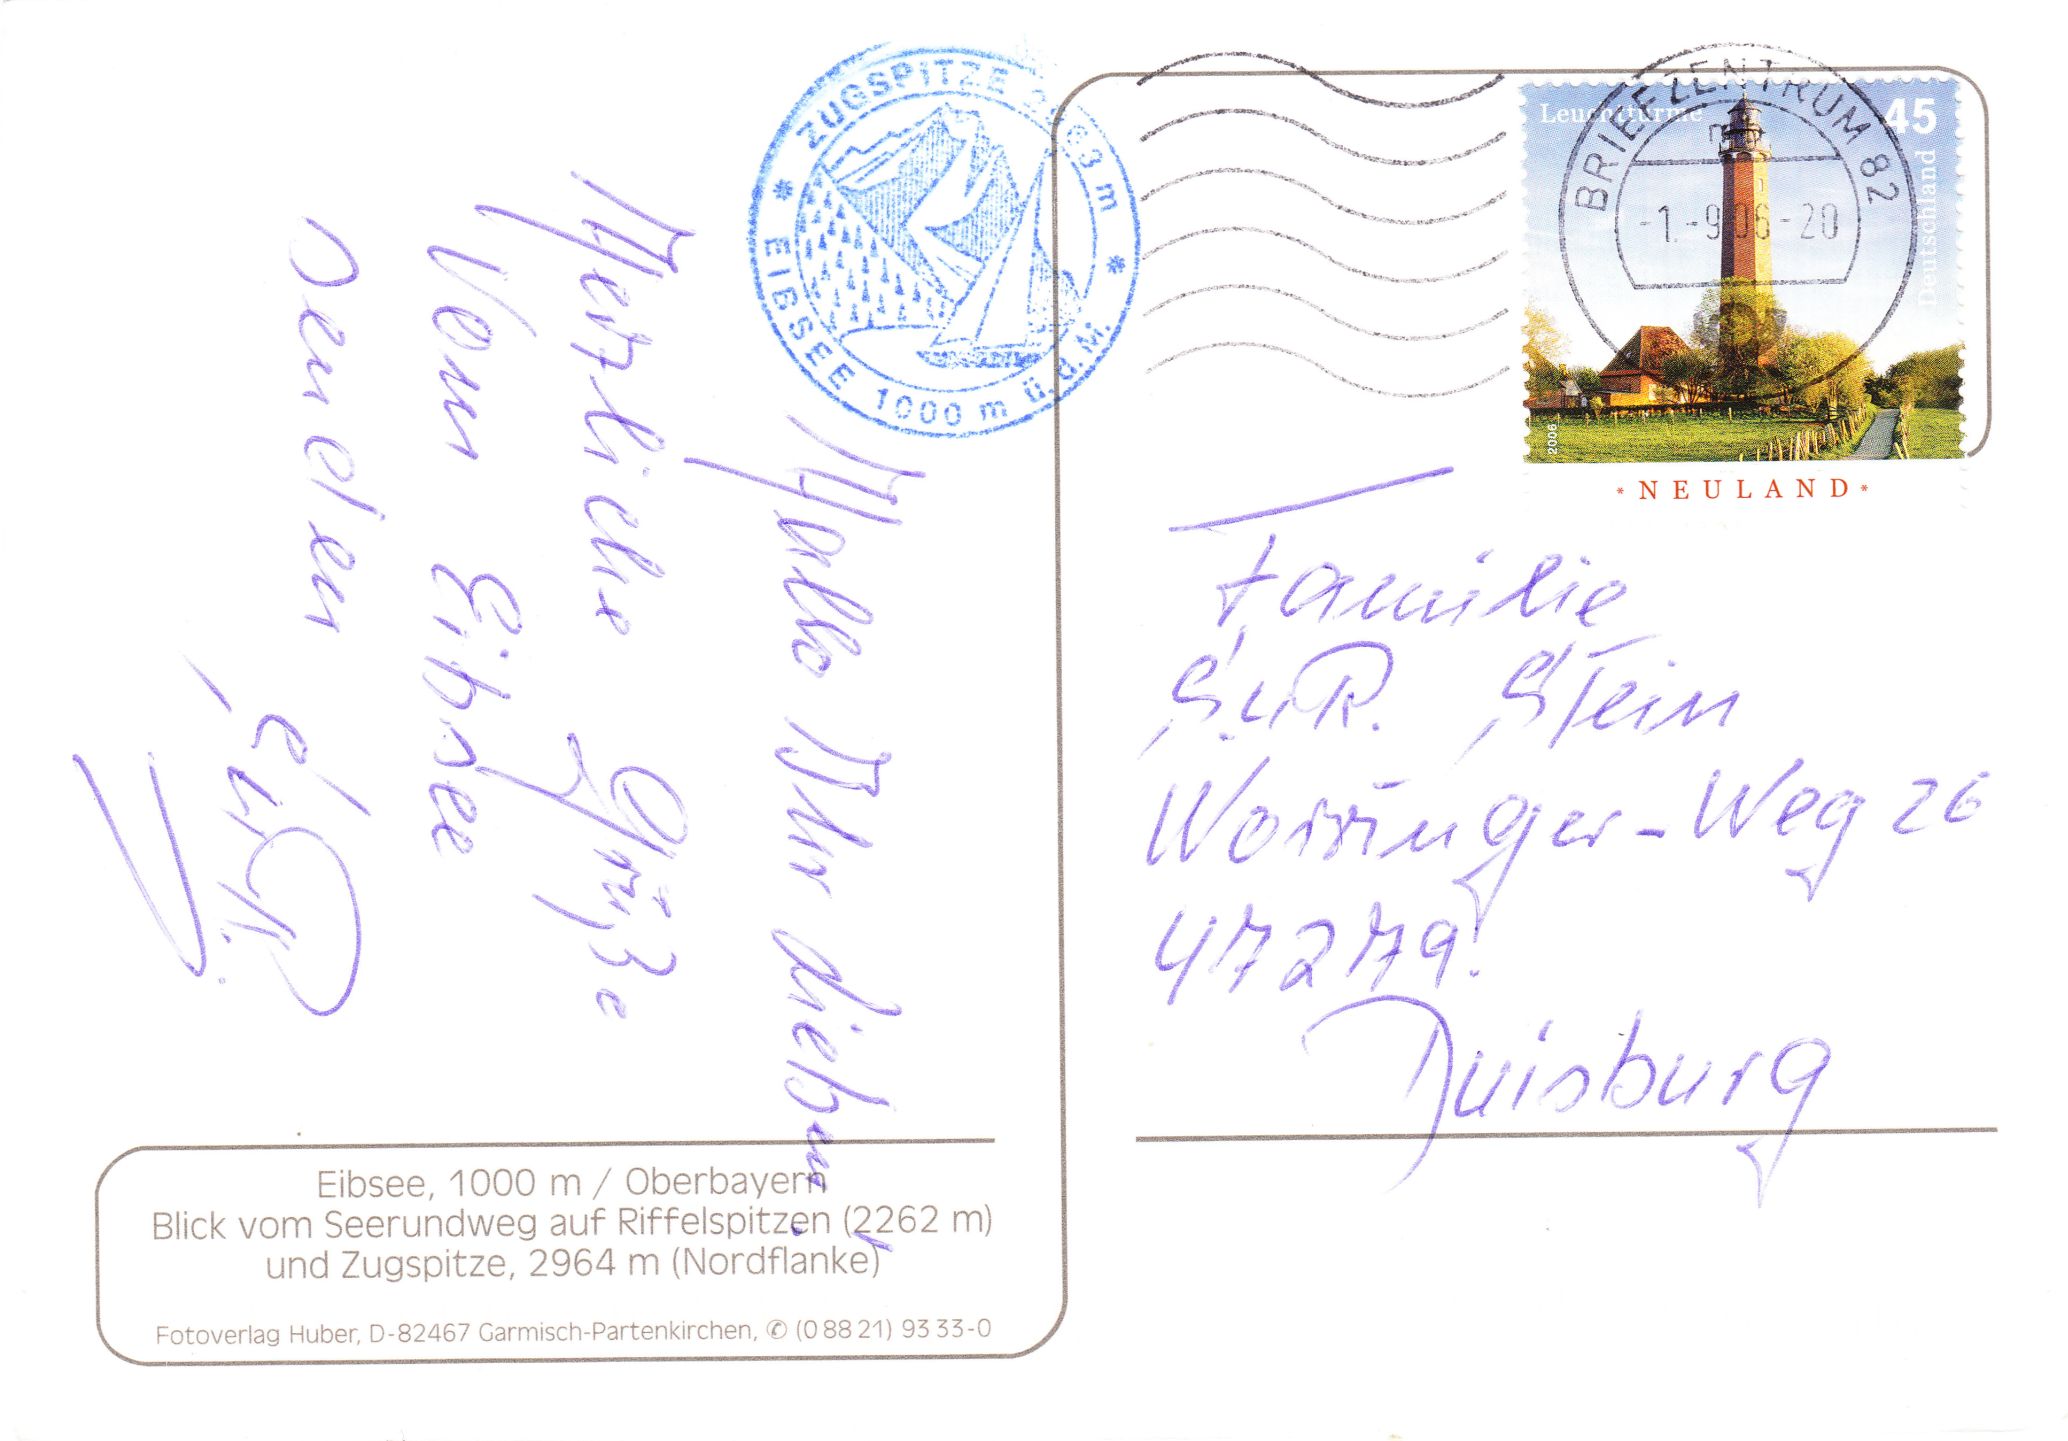 Hallo Ihr lieben,
Herzliche Grüße
Vom Eibsee
senden
ZUGSPITZE 2963 m
* EIBSEE 1000 m ü.d.M. *
Leuchttürme
45
Deutschland
2006
* NEULAND *
BRIEFZENTRUM 82
-1.-9.06-20
Familie
S.u.R. Stein
Worringer-Weg 26
47279.
Duisburg
Eibsee, 1000 m / Oberbayern
Blick vom Seerundweg auf Riffelspitzen (2262 m)
und Zugspitze, 2964 m (Nordflanke)
Fotoverlag Huber, D-82467 Garmisch-Partenkirchen, ✆ (0 88 21) 93 33-0